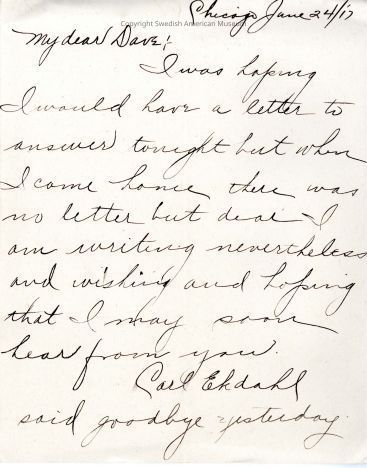 Chicago June 24/17
Copyright Swedish American Museum
My dear Dave:-
I was hoping
I would have a letter to
answer tonight but when
I came home there was
no letter but dear I
am writing nevertheless
and wishing and hoping
that I may soon
hear from you.
Carl Ekdahl
said goodbye yesterday.